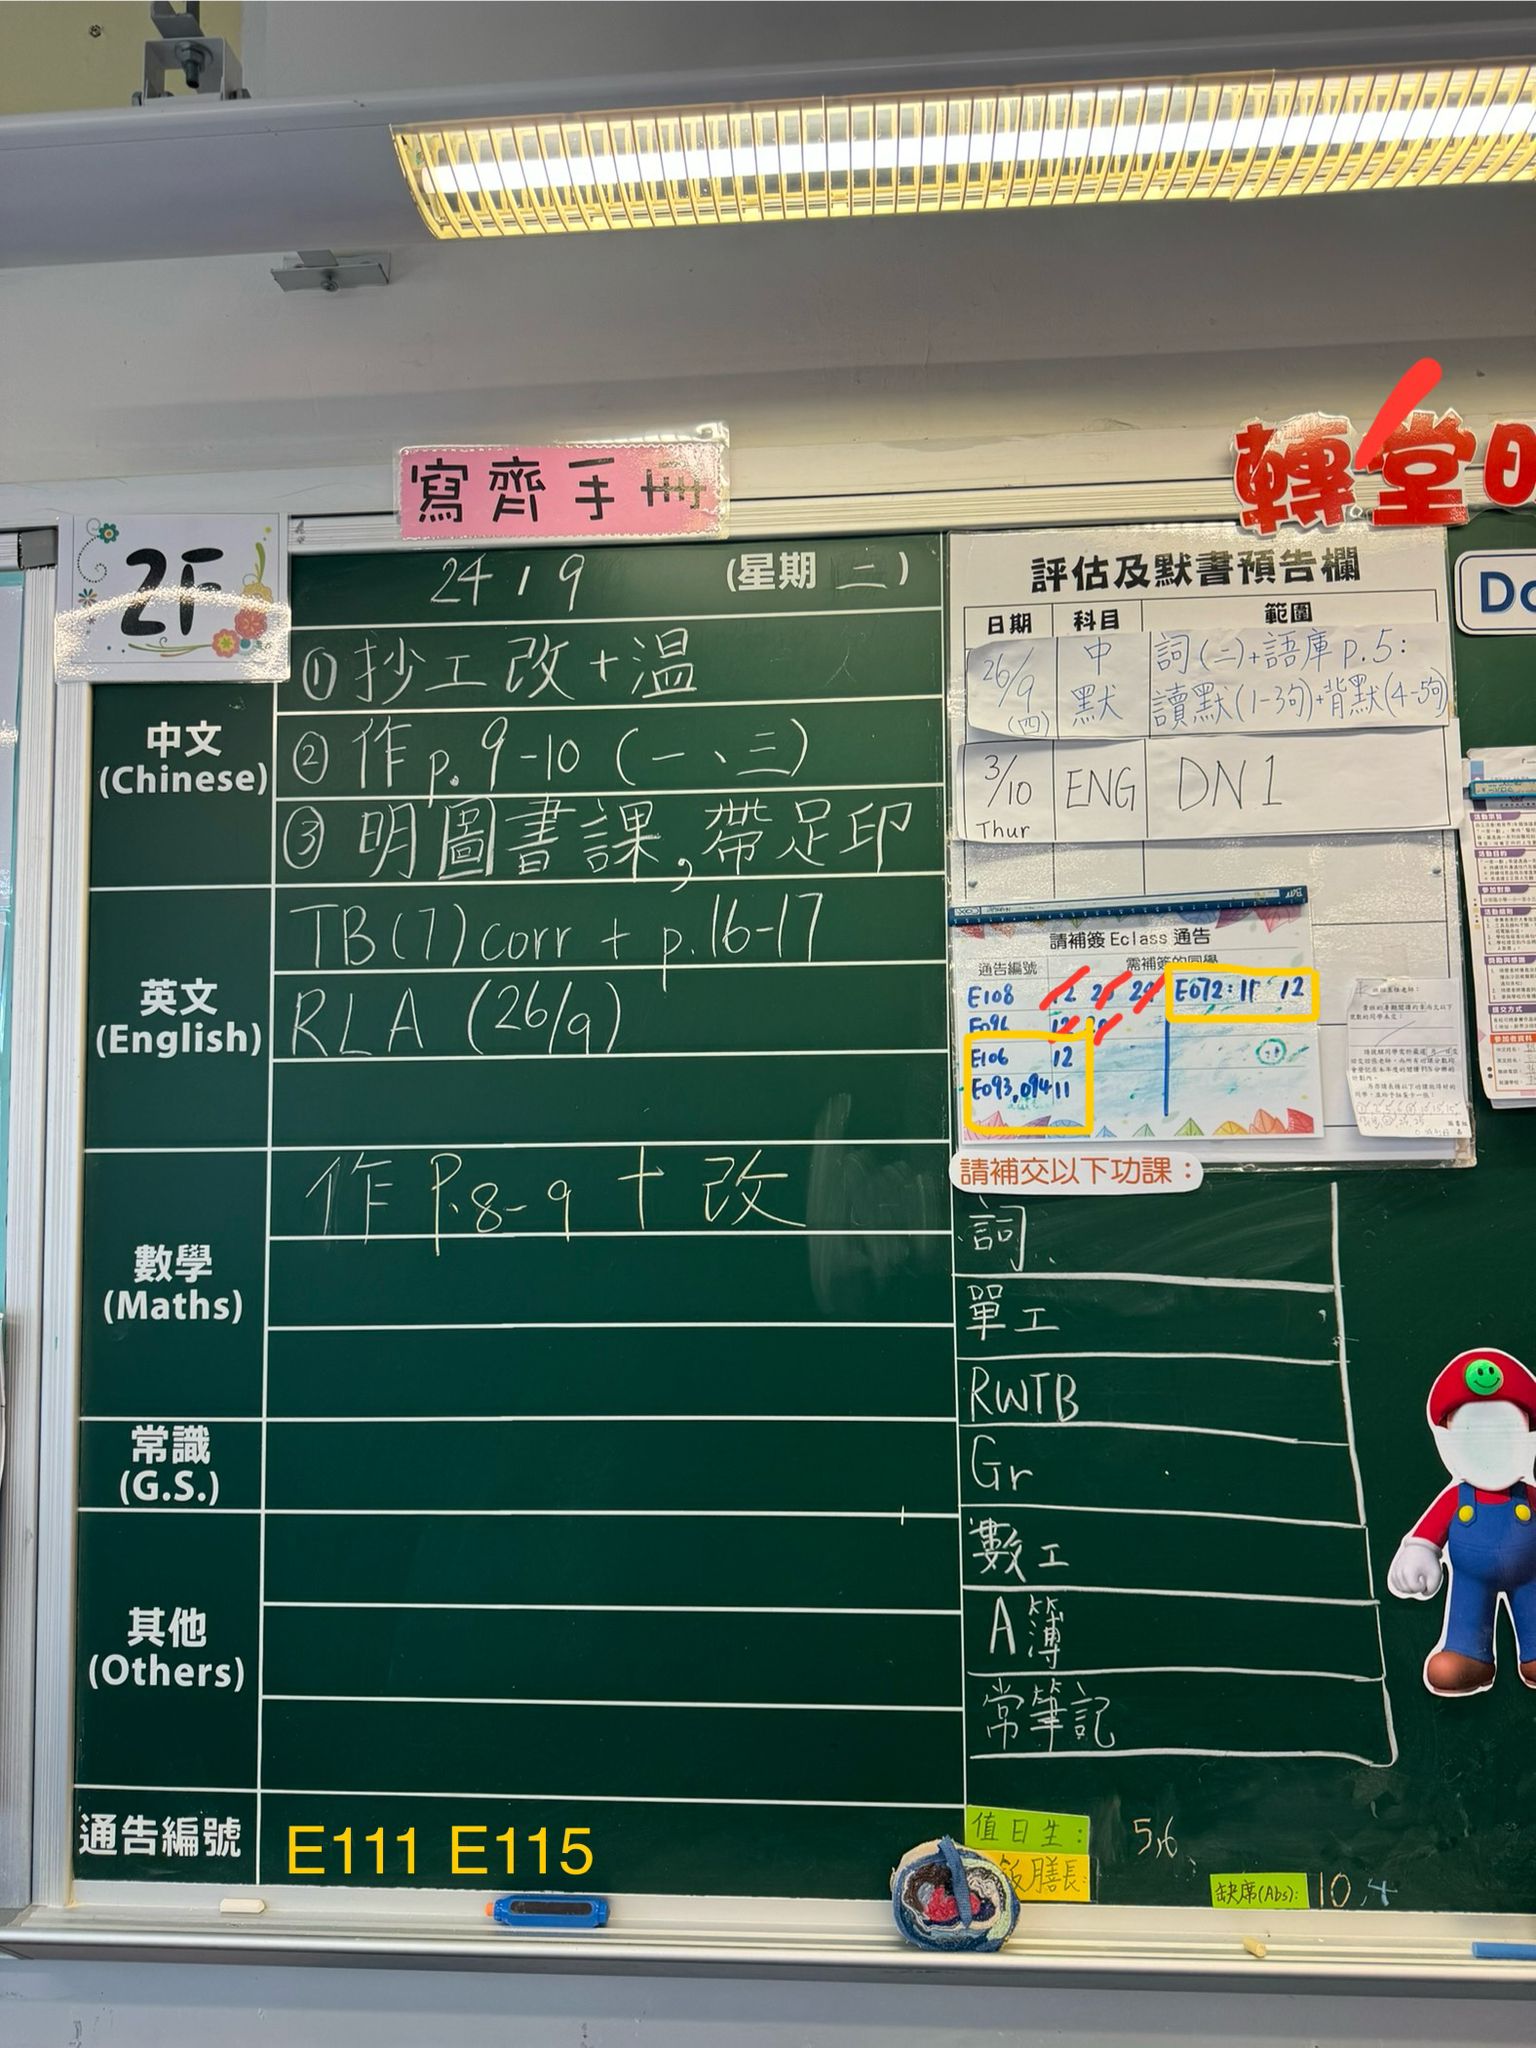 寫齊手冊
轉堂
2F
24 / 9 (星期 二 )
中文
(Chinese)
① 抄工改+温
② 作 p. 9-10 (一、三)
③ 明圖書課,帶足印
英文
(English)
TB(7) corr + p.16-17
RLA (26/9)
數學
(Maths)
作 P.8-9 + 改
常識
(G.S.)
其他
(Others)
通告編號
E111 E115
評估及默書預告欄
日期 科目 範圍
26/9 (四) 中默 詞(二)+語庫 p.5:
讀默(1-3句)+背默(4-5句)
3/10 Thur ENG DN 1
請補簽 Eclass 通告
通告編號 需補簽的同學
E108 12 E072: 11 12
E096 12
E106 12
E093, 094 11
請補交以下功課:
詞
單工
RWTB
Gr
數工
A簿
常筆記
值日生: 5,6
飯膳長:
缺席(Abs): 10,4